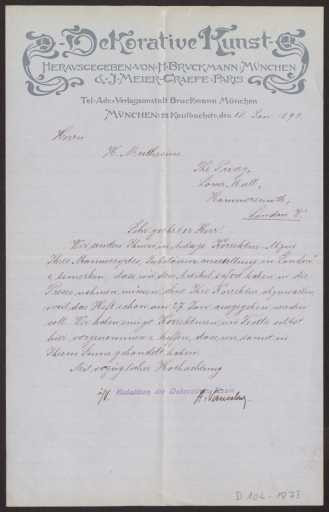 Dekorative Kunst
HERAUSGEGEBEN·VON·H·BRUCKMANN MÜNCHEN
& J·MEIER-GRAEFE·PARIS
Tel-Adr: Verlagsanstalt Bruckmann München
MÜNCHEN: 22 Kaulbachstr. den 18. Jan. 189
Herrn
H. Muthesius
The Priory,
Lower Mall,
Hammersmith,
London W.
Sehr geehrter Herr!
Wir senden Ihnen
Ihres Manuscriptes, in London
& bemerken, dass wir den Artikel sofort haben in die
Presse nehmen müssen, ohne Ihre Korrektur abzuwarten
weil das Heft schon am 27 Jan. ausgegeben werden
soll. Wir haben einige Korrekturen im Texte selbst
hier vorgenommen & hoffen, dass wir damit in
Ihrem Sinne gehandelt haben.
Mit vorzüglicher Hochachtung
Redaktion der Dekorativen Kunst
D 102 - 1873